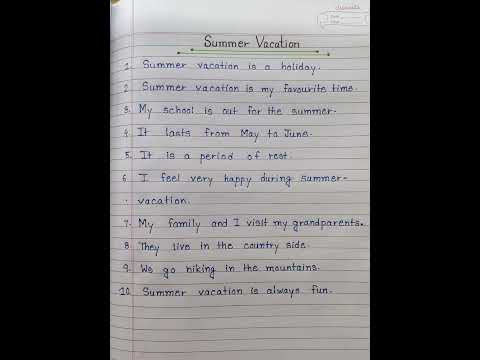 Summer Vacation
1. Summer vacation is a holiday.
2. Summer vacation is my favourite time.
3. My school is out for the summer.
4. It lasts from May to June.
5. It is a period of rest.
6. I feel very happy during summer-
vacation.
7. My family and I visit my grandparents.
8. They live in the country side.
9. We go hiking in the mountains.
10. Summer vacation is always fun.